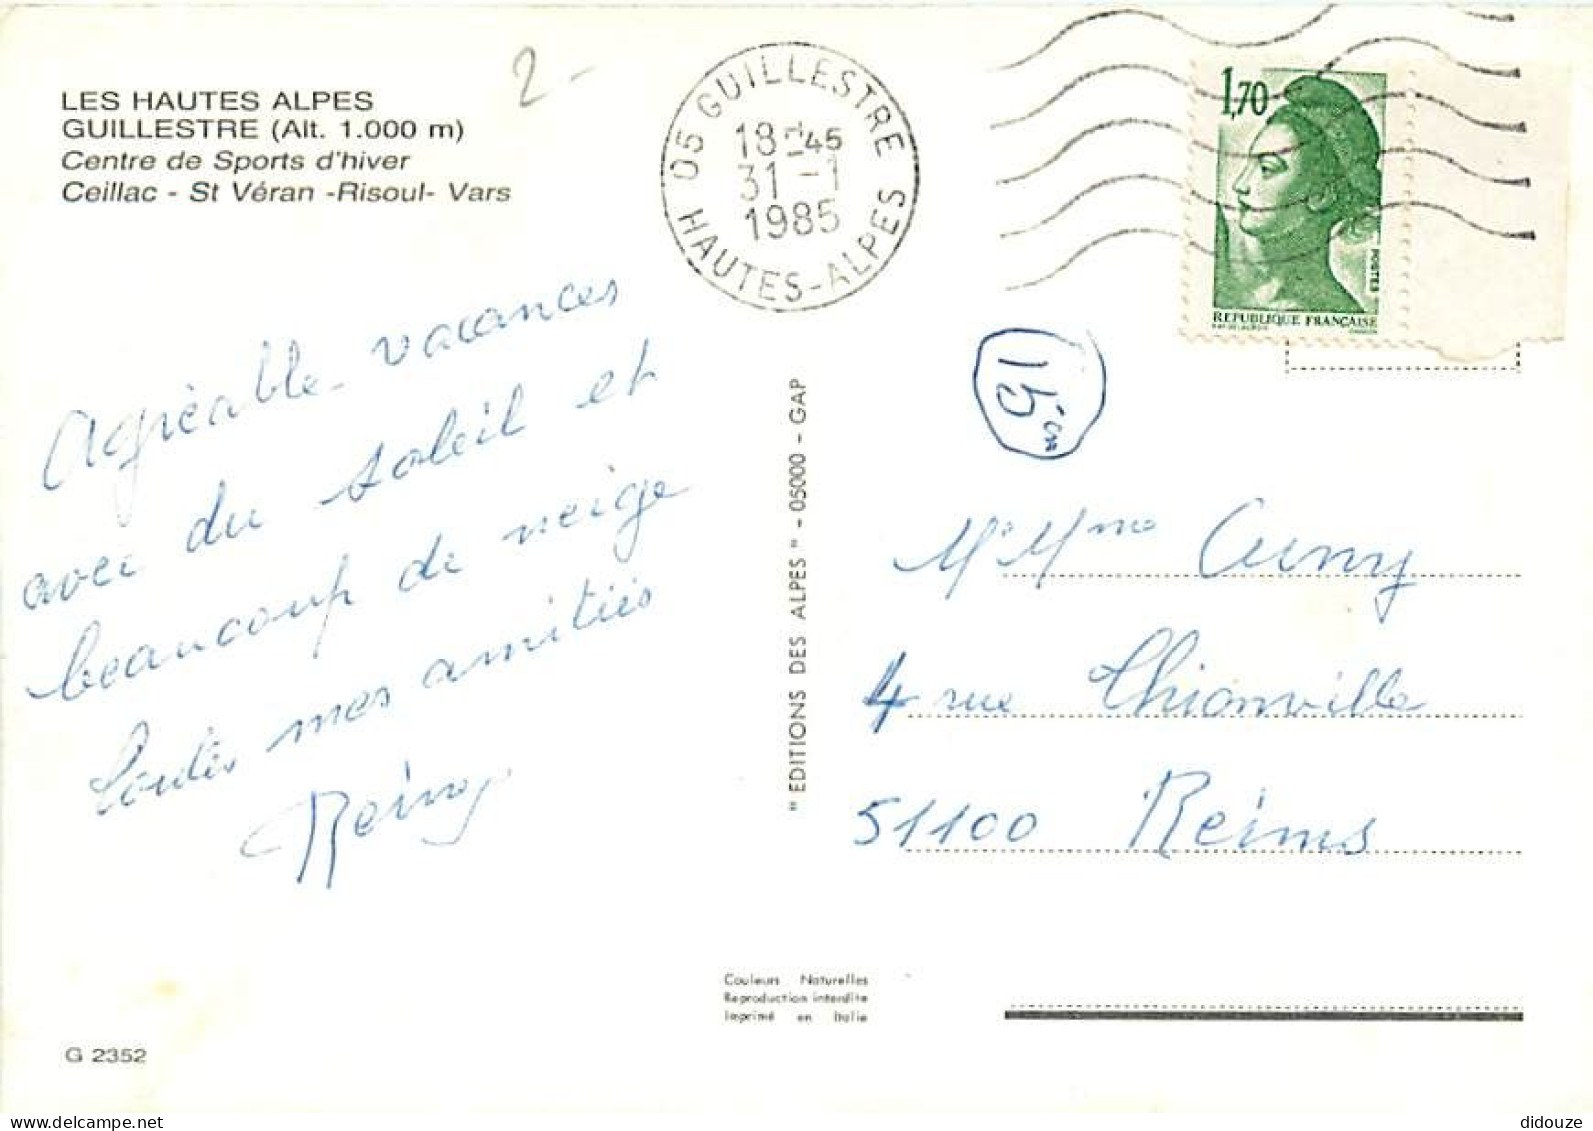 LES HAUTES ALPES
GUILLESTRE (Alt. 1.000 m)
Centre de Sports d'hiver
Ceillac - St Véran -Risoul- Vars
2 -
05 GUILLESTRE
18H45
31 -1
1985
HAUTES-ALPES
1,70
POSTES
REPUBLIQUE FRANÇAISE
Agréable vacances
avec du soleil et
beaucoup de neige
toutes mes amitiés
Rémy
" EDITIONS DES ALPES " - 05000 - GAP
15
Mr Mme Cuny
4 rue Thionville
51100 Reims
Couleurs Naturelles
Reproduction interdite
Imprimé en Italie
G 2352
didouze